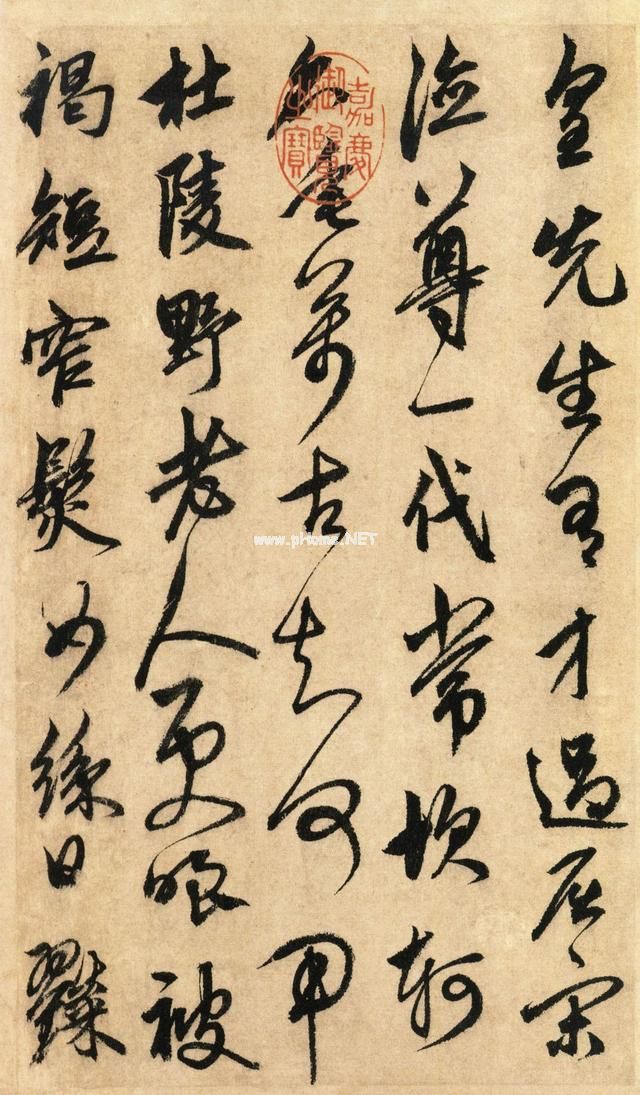 皇先生有才過屈宋
德尊一代常坎軻
名垂萬古知何用
杜陵野老人更嗤被
褐短窄鬢如絲日糴
嘉慶御覽之寶
www.pHome.NET